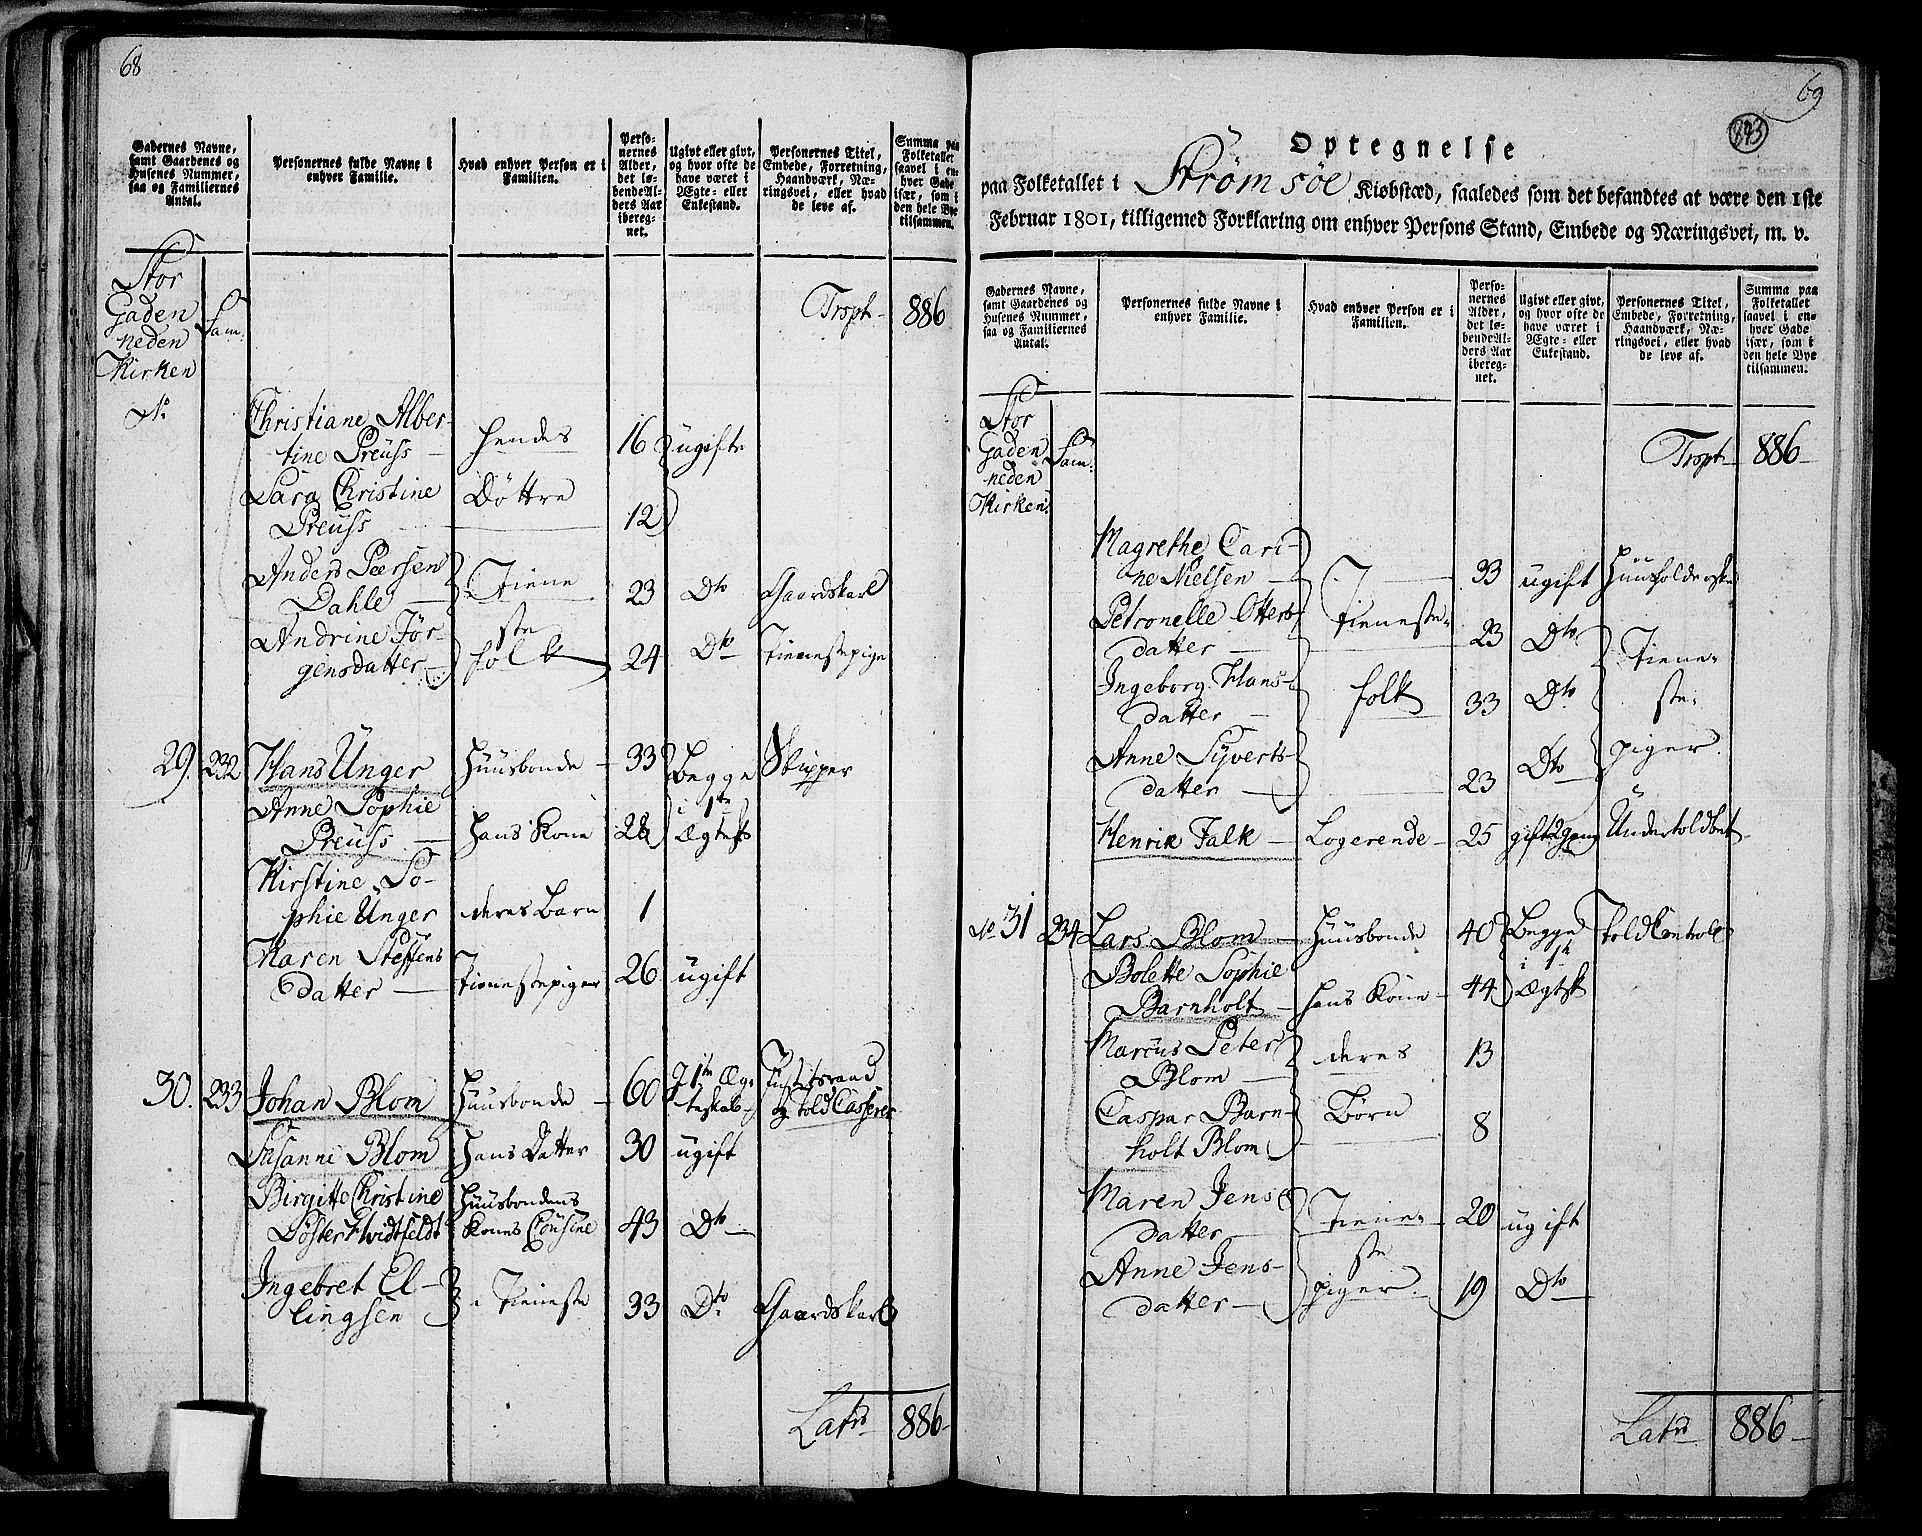 68
Gadernes Navne,
samt Gaardenes og
Husenes Nummer,
saa og Familiernes
Antal.
Personernes fulde Navne i
enhver Familie.
Hvad enhver Person er i
Familien.
Perso-
nernes
Alder,
det lø-
bende Al-
ders Aar
ibereg-
net.
Ugivt eller givt,
og hvor ofte de
have været i
Ægte- eller
Enkestand.
Personernes Titel,
Embede, Forretning,
Haandværk, Næ-
ringsvei, eller hvad
de leve af.
Summa paa
Folketallet
saavel i en-
hver Gade
især, som i
den hele Bye
tilsammen.
Stor
Gaden
neden
Kirken
Fam:
Trspt 886
No
Christiane Alber-
tine Preuss hendes 16 ugifte
Sara Christine Døttre
Preuss 12
Anders Peersen
Dahle Tiene 23 Dto Gaardskarl
Andrine Jør- ste
gensdatter folk 24 Dto Tienestepige
29. 232 Hans Unger Huusbonde 33 Begge Skipper
Anne Sophie i 1te
Preuss hans Kone 28 Ægtesk
Kirstine So-
phie Unger deres Barn 1
Karen Steffens
datter Tienestepiger 26 ugift
30. 233 Johan Blom Huusbonde 60 I 1te Ægte- Justitsraad
teskab og Told Casserer
Susanne Blom hans Datter 30 ugift
Birgitte Christine Huusbondens
Løster Hvidtfeldt Kones Cousine 43 Dto
Ingebret El-
lingsen i Tieneste 33 Dto Gaardskarl
Latus 886
69
893
Optegnelse
paa Folketallet i Strømsøe Kiøbstæd, saaledes som det befandtes at være den 1ste
Februar 1801, tilligemed Forklaring om enhver Persons Stand, Embede og Næringsvei, m. v.
Gadernes Navne,
samt Gaardenes og
Husenes Nummer,
saa og Familiernes
Antal.
Personernes fulde Navne i
enhver Familie.
Hvad enhver Person er i
Familien.
Perso-
nernes
Alder,
det lø-
bende Al-
ders Aar
ibereg-
net.
Ugivt eller givt,
og hvor ofte de
have været i
Ægte- eller
Enkestand.
Personernes Titel,
Embede, Forretning,
Haandværk, Næ-
ringsvei, eller hvad
de leve af.
Summa paa
Folketallet
saavel i en-
hver Gade
især, som i
den hele Bye
tilsammen.
Stor
Gaden
neden
Kirken
Fam:
Trspt 886
Magrethe Cari-
ne Nielsen 33 ugift
Petronelle Otters- Tieneste-
datter 23 Dto Tiene-
Ingeborg Hans-
datter folk 33 Dto ste-
Anne Syverts- piger
datter 23 Dto
Henrik Falk Logerende 25 gift 2 gang
No 31 234 Lars Blom Huusbonde 40 Begge
Bolette Sophie i 1te
Barnholt hans Kone 44 Ægtsk
Marcus Peter
Blom deres 13
Caspar Barn- Børn
holt Blom 8
Maren Jens
datter Tiene- 20 ugift
Anne Jens- ste
datter piger 19 Dto
Latus 886